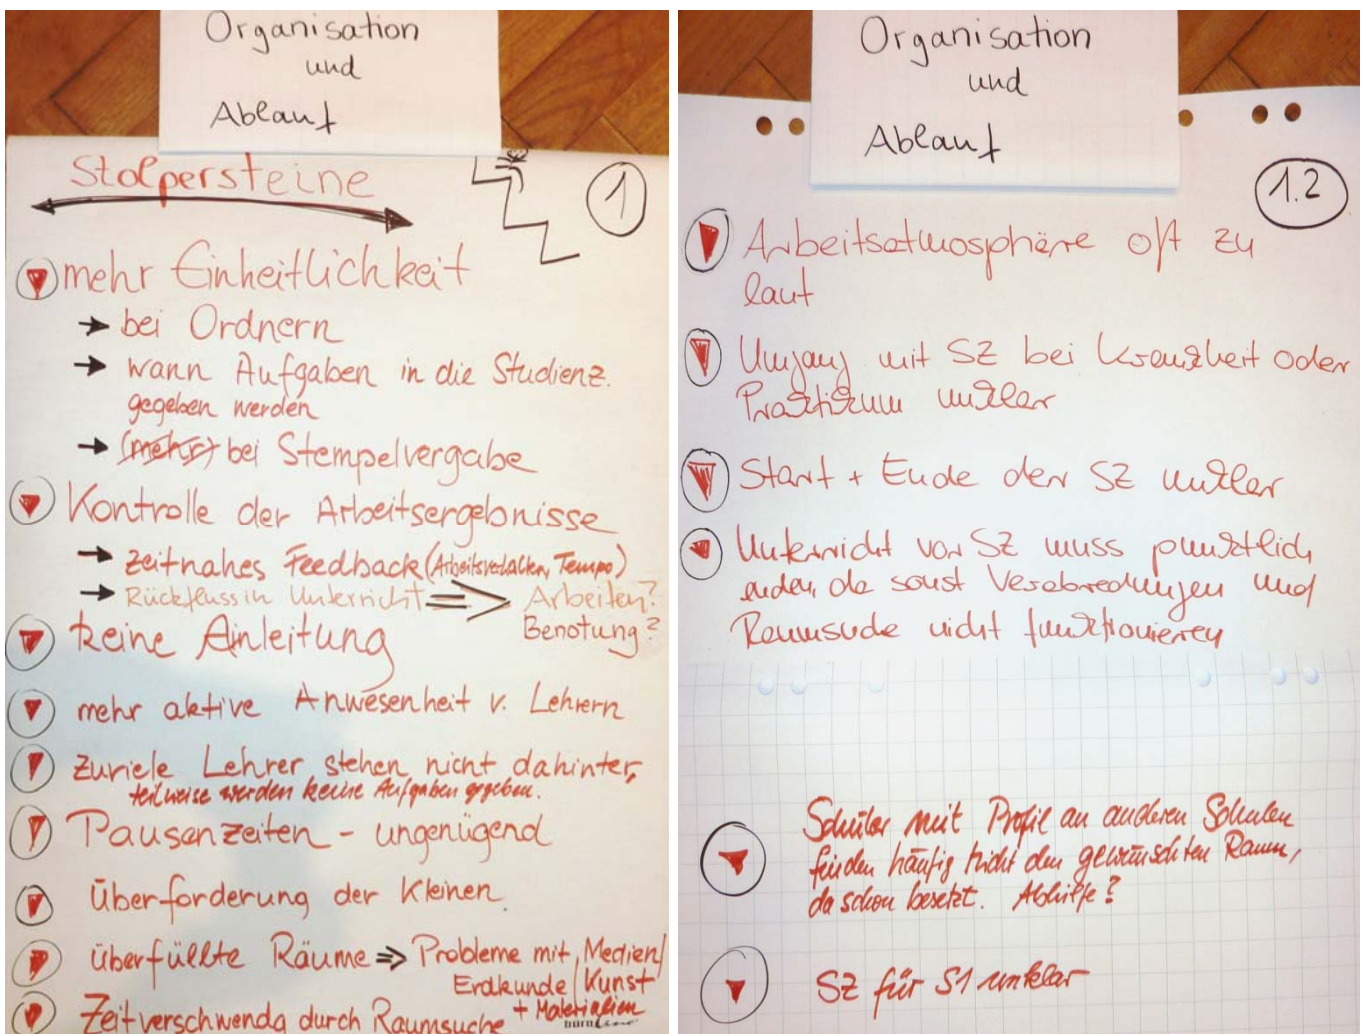 Organisation
und
Ablauf
Stolpersteine
1
mehr Einheitlichkeit
→ bei Ordnern
→ wann Aufgaben in die Studienz.
gegeben werden
→ (mehr) bei Stempelvergabe
Kontrolle der Arbeitsergebnisse
→ zeitnahes Feedback (Arbeitsverhalten, Tempo)
→ Rückfluss in Unterricht ⇒ Arbeiten?
Benotung?
keine Anleitung
mehr aktive Anwesenheit v. Lehrern
zuviele Lehrer stehen nicht dahinter,
teilweise werden keine Aufgaben gegeben.
Pausenzeiten - ungenügend
Überforderung der Kleinen
überfüllte Räume ⇒ Probleme mit Medien/
Erdkunde/Kunst
+ Materialien
Zeitverschwendg durch Raumsuche
Organisation
und
Ablauf
1.2
Arbeitsatmosphäre oft zu
laut
Umgang mit SZ bei Krankheit oder
Praktikum unklar
Start + Ende der SZ unklar
Unterricht vor SZ muss pünktlich
enden, da sonst Verabredungen und
Raumsuche nicht funktionieren
Schüler mit Profil an anderen Schulen
finden häufig nicht den gewünschten Raum,
da schon besetzt. Abhilfe?
SZ für S1 unklar